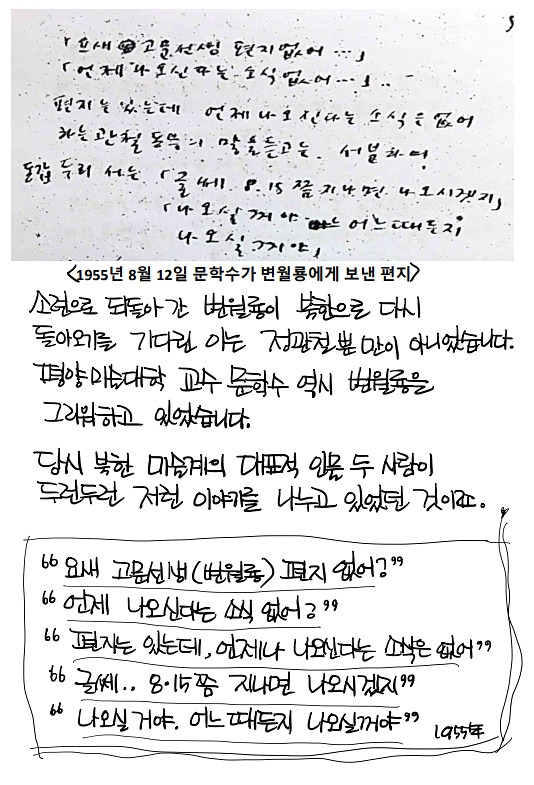 「요새 고문선생 편지없어…」
「언제 나오신다는 소식없어…」..
편지는 있는데 언제 나오신다는 소식은 없어
하는 관철동무의 말을 듣고는. 서법하여
동갑 두리 서는 「글쎄. 8.15쯤 지나면 나오시겠지」
「나오실꺼야 어느때든지
나오실꺼야」
<1955년 8월 12일 문학수가 변월룡에게 보낸 편지>
소련으로 되돌아 간 변월룡이 북한으로 다시
돌아오기를 기다린 이는 정관철뿐만이 아니었습니다.
평양미술대학 교수 문학수 역시 변월룡을
그리워하고 있었습니다.
당시 북한 미술계의 대표적 인물 두 사람이
두런두런 저런 이야기를 나누고 있었던 것이죠.
"요새 고문선생(변월룡) 편지 없어?"
"언제 나오신다는 소식 없어?"
"편지는 있는데, 언제나 나오신다는 소식은 없어"
"글쎄.. 8·15쯤 지나면 나오시겠지"
"나오실 거야. 어느때든지 나오실꺼야"
1955年